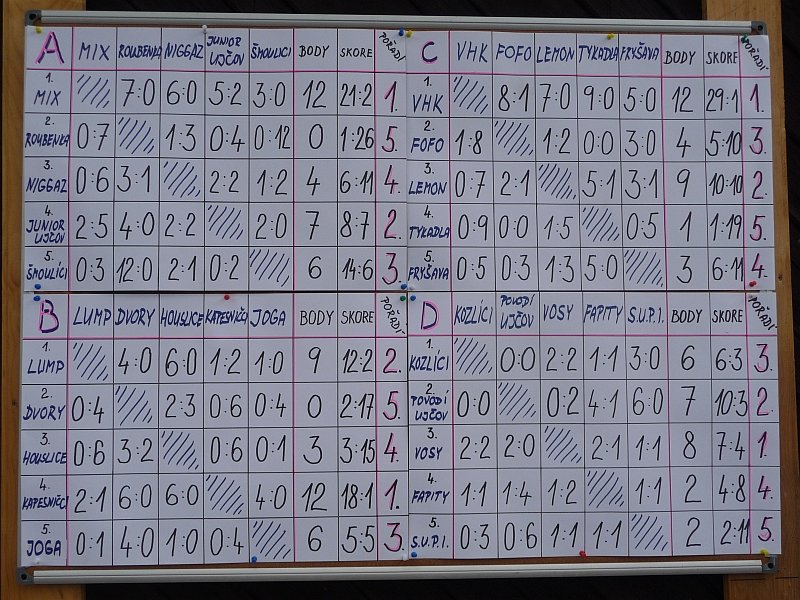 A MIX ROUBENKA NIGGAZ JUNIOR UJČOV ŠMOULICI BODY SKORE POŘADÍ
1. MIX 7:0 6:0 5:2 3:0 12 21:2 1.
2. ROUBENKA 0:7 1:3 0:4 0:12 0 1:26 5.
3. NIGGAZ 0:6 3:1 2:2 1:2 4 6:11 4.
4. JUNIOR UJČOV 2:5 4:0 2:2 2:0 7 8:7 2.
5. ŠMOULÍCI 0:3 12:0 2:1 0:2 6 14:6 3.
C VHK FOFO LEMON TYKADLA FRYŠAVA BODY SKORE POŘADÍ
1. VHK 8:1 7:0 9:0 5:0 12 29:1 1.
2. FOFO 1:8 1:2 0:0 3:0 4 5:10 3.
3. LEMON 0:7 2:1 5:1 3:1 9 10:10 2.
4. TYKADLA 0:9 0:0 1:5 0:5 1 1:19 5.
5. FRYŠAVA 0:5 0:3 1:3 5:0 3 6:11 4.
B LUMP DVORY HOUSLICE KAPESNÍČCI JOGA BODY SKORE POŘADÍ
1. LUMP 4:0 6:0 1:2 1:0 9 12:2 2.
2. DVORY 0:4 2:3 0:6 0:4 0 2:17 5.
3. HOUSLICE 0:6 3:2 0:6 0:1 3 3:15 4.
4. KAPESNÍČCI 2:1 6:0 6:0 4:0 12 18:1 1.
5. JOGA 0:1 4:0 1:0 0:4 6 5:5 3.
D KOZLÍCI POVODÍ UJČOV VOSY FAPITY S.U.P.I. BODY SKORE POŘADÍ
1. KOZLÍCI 0:0 2:2 1:1 3:0 6 6:3 3.
2. POVODÍ UJČOV 0:0 0:2 4:1 6:0 7 10:3 2.
3. VOSY 2:2 2:0 2:1 1:1 8 7:4 1.
4. FAPITY 1:1 1:4 1:2 1:1 2 4:8 4.
5. S.U.P.I. 0:3 0:6 1:1 1:1 2 2:11 5.